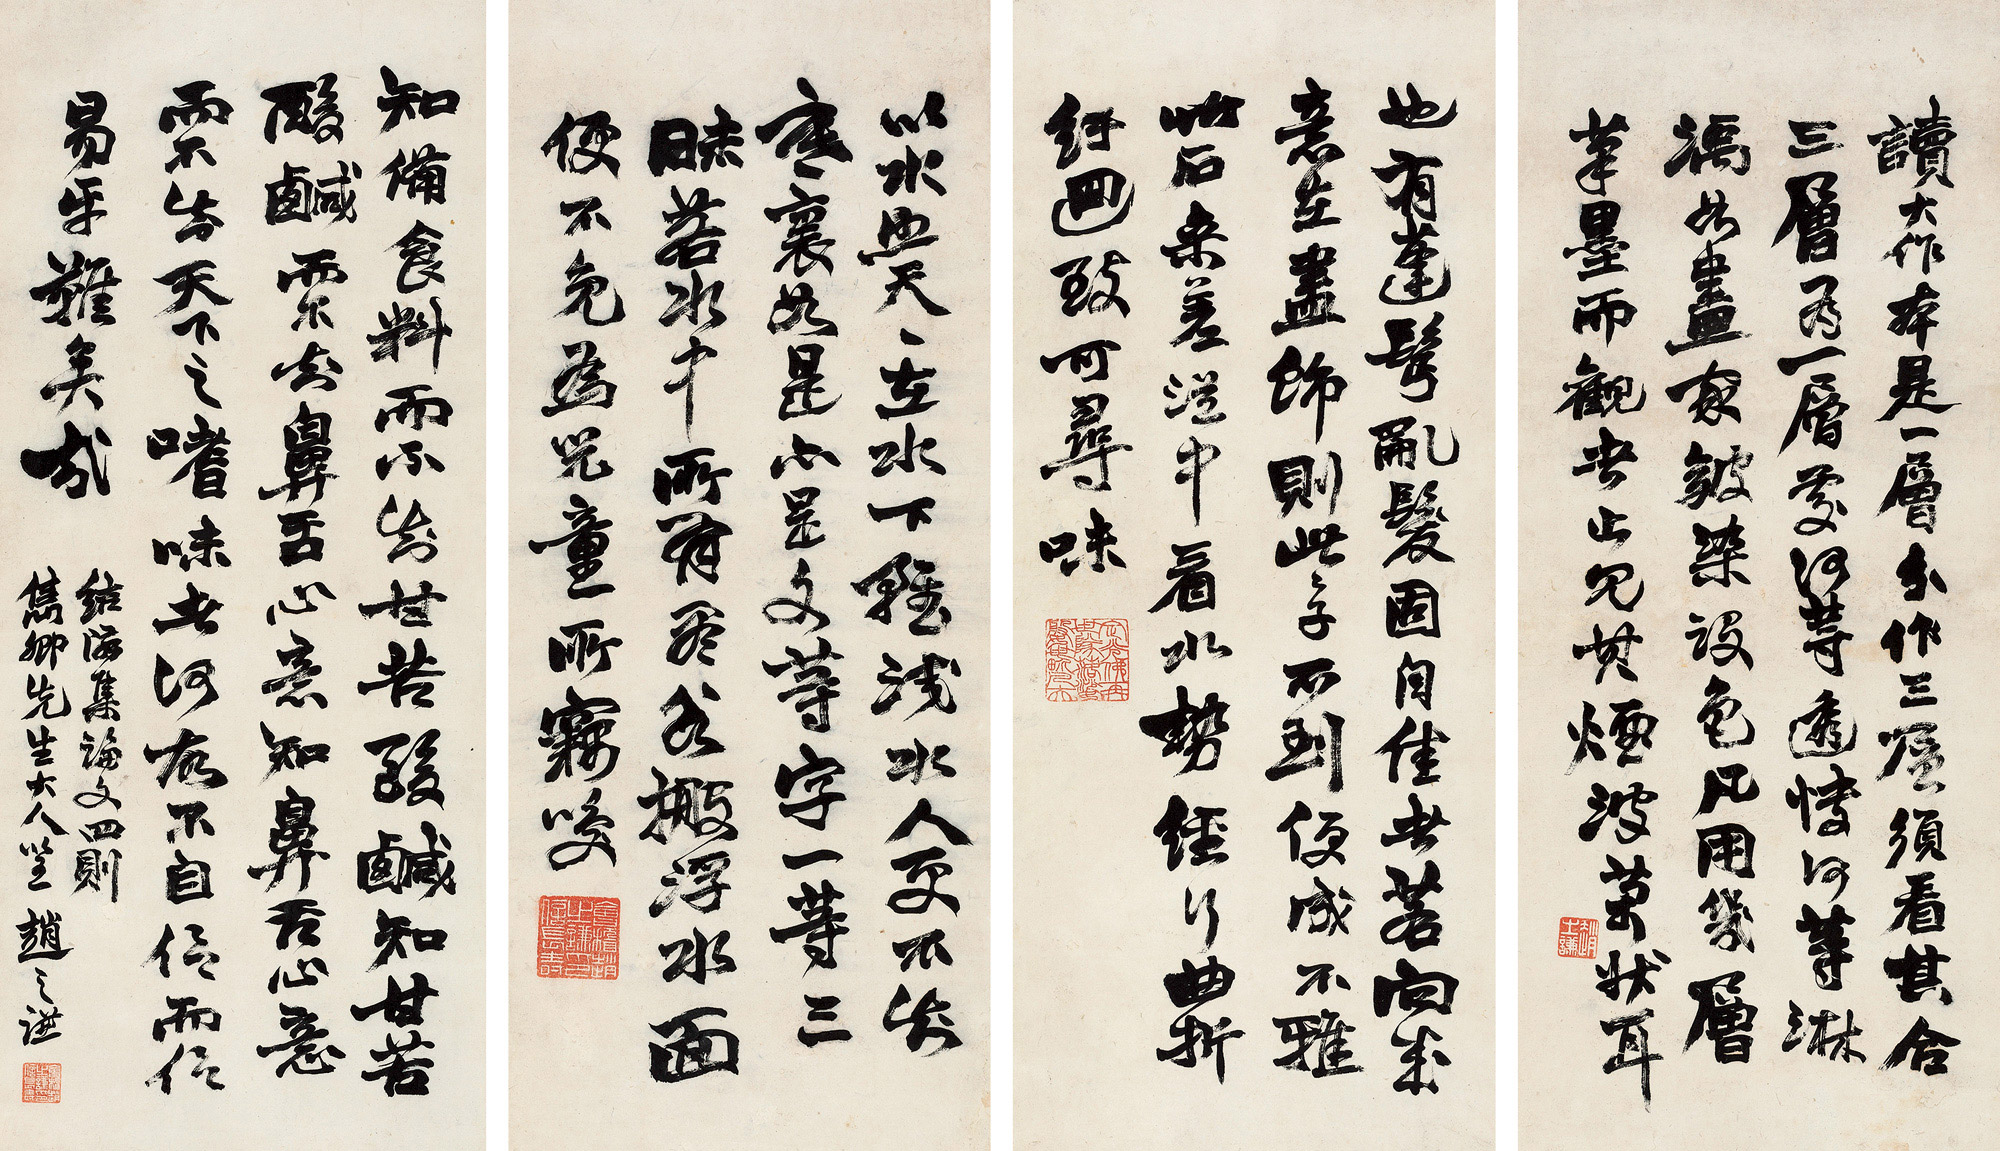 讀大作本是一層分作三層須看其合
三層為一層處何等透悽何等淋
漓如畫家皴染設色凡用幾層
筆墨而觀者止見其煙波萬狀耳
也有蓬亂髮固自佳者若向
意在畫飾則此子不到便成不雅
此石叅差澁中看水勢經行曲折
紆迴致可尋味
以水照天〻在水下雖淺水人更不知
裏如是亦是文等字一等三
昧若水中所有君必搬浮水面
便不免為兒童所竊笑
知備食料而不知甘苦酸鹹知甘苦
酸鹹而不知鼻舌心意知鼻舌心意
而不知天下之嗜味者何故不自信而信
易牙難矣哉
海集論文四則
雋卿先生大人 趙之謙
會稽趙之謙印信長壽